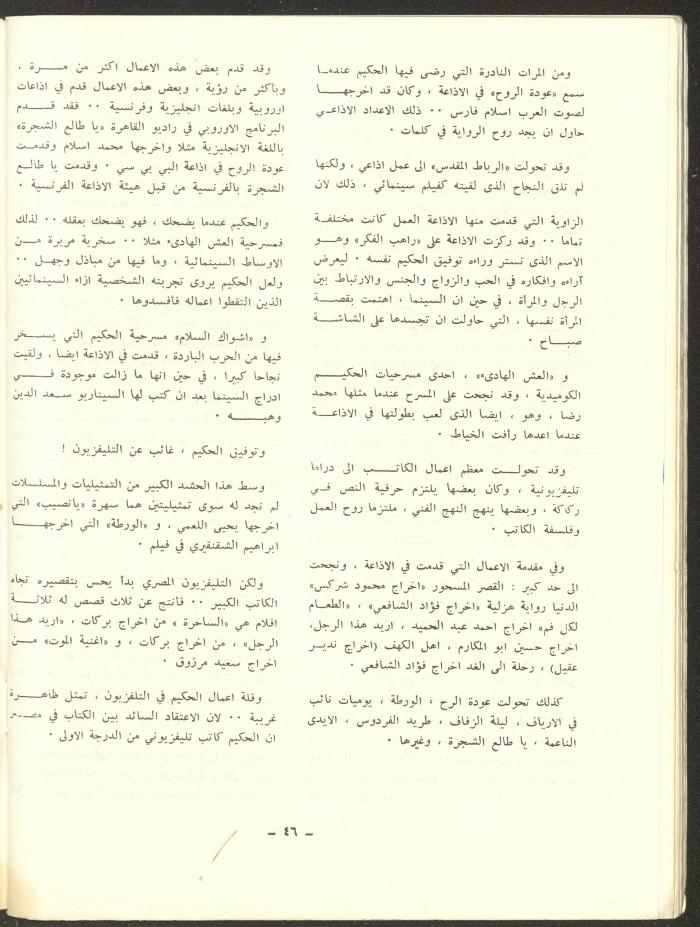 ومن المرات النادرة التي رضى فيها الحكيم عندما
سمع «عودة الروح» في الاذاعة ، وكان قد اخرجها
لصوت العرب اسلام فارس ٠٠ ذلك الاعداد الاذاعي
حاول ان يجد روح الرواية في كلمات ٠
وقد تحولت «الرباط المقدس» الى عمل اذاعي ، ولكنها
لم تلق النجاح الذى لقيته كفيلم سينمائي ، ذلك لان
الزاوية التي قدمت منها الاذاعة العمل كانت مختلفة
تماما ٠٠ وقد ركزت الاذاعة على «راهب الفكر» وهو
الاسم الذى تستر وراءه توفيق الحكيم نفسه ٠ ليعرض
آراءه وافكاره في الحب والزواج والجنس والارتباط بين
الرجل والمرأة ، في حين ان السينما ، اهتمت بقصة
المرأة نفسها ، التي حاولت ان تجسدها على الشاشة
صباح ٠
و «العش الهادىء» ، احدى مسرحيات الحكيم
الكوميدية ، وقد نجحت على المسرح عندما مثلها محمد
رضا ، وهو ، ايضا الذى لعب بطولتها في الاذاعة
عندما اعدها رأفت الخياط ٠
وقد تحولت معظم اعمال الكاتب الى دراما
تليفزيونية ، وكان بعضها يلتزم حرفية النص في
ركاكة ، وبعضها ينهج النهج الفني ، ملتزما روح العمل
وفلسفة الكاتب ٠
وفي مقدمة الاعمال التي قدمت في الاذاعة ، ونجحت
الى حد كبير : القصر المسحور «اخراج محمود شركس»
الدنيا رواية هزلية «اخراج فؤاد الشافعي» ، «الطعام
لكل فم» اخراج احمد عبد الحميد ، اريد هذا الرجل،
اخراج حسين ابو المكارم ، اهل الكهف (اخراج ندير
عقيل) ، رحلة الى الغد اخراج فؤاد الشافعي ٠
كذلك تحولت عودة الرح ، الورطة ، يوميات نائب
في الارياف ، ليلة الزفاف ، طريد الفردوس ، الايدى
الناعمة ، يا طالع الشجرة ، وغيرها ٠
وقد قدم بعض هذه الاعمال اكثر من مرة ،
وبأكثر من رؤية ، وبعض هذه الاعمال قدم في اذاعات
اوروبية وبلغات انجليزية وفرنسية ٠٠ فقد قدم
البرنامج الاوروبي في راديو القاهرة «يا طالع الشجرة»
باللغة الانجليزية مثلا واخرجها محمد اسلام وقدمت
عودة الروح في اذاعة البي بي سي ٠ وقدمت يا طالع
الشجرة بالفرنسية من قبل هيئة الاذاعة الفرنسية ٠
والحكيم عندما يضحك ، فهو يضحك بعقله ٠٠ لذلك
فمسرحية العش الهادىء مثلا ٠٠ سخرية مريرة من
الاوساط السينمائية ، وما فيها من مباذل وجهل ٠٠
ولعل الحكيم يروى تجربته الشخصية ازاء السينمائيين
الذين التقطوا اعماله فأفسدوها ٠
و «اشواك السلام» مسرحية الحكيم التي يسخر
فيها من الحرب الباردة ، قدمت في الاذاعة ايضا ، ولقيت
نجاحا كبيرا ، في حين انها ما زالت موجودة في
ادراج السينما بعد ان كتب لها السيناريو سعد الدين
وهبه ٠
وتوفيق الحكيم ، غائب عن التليفزيون !
وسط هذا الحشد الكبير من التمثيليات والمسلسلات
لم نجد له سوى تمثيليتين هما سهرة «يانصيب» التي
اخرجها يحيى اللعمي ، و «الورطة» التي اخرجها
ابراهيم الشقنقيري في فيلم ٠
ولكن التليفزيون المصري بدأ يحس بتقصيره تجاه
الكاتب الكبير ٠٠ فأنتج عن ثلاث قصص له ثلاثة
افلام هي «الساحرة » من اخراج بركات ، «اريد هذا
الرجل» ، من اخراج بركات ، و «اغنية الموت» من
اخراج سعيد مرزوق ٠
وقلة اعمال الحكيم في التلفزيون ، تمثل ظاهرة
غريبة ٠٠ لان الاعتقاد السائد بين الكتاب في مصر
ان الحكيم كاتب تليفزيوني من الدرجة الاولى ٠
– ٤٦ –